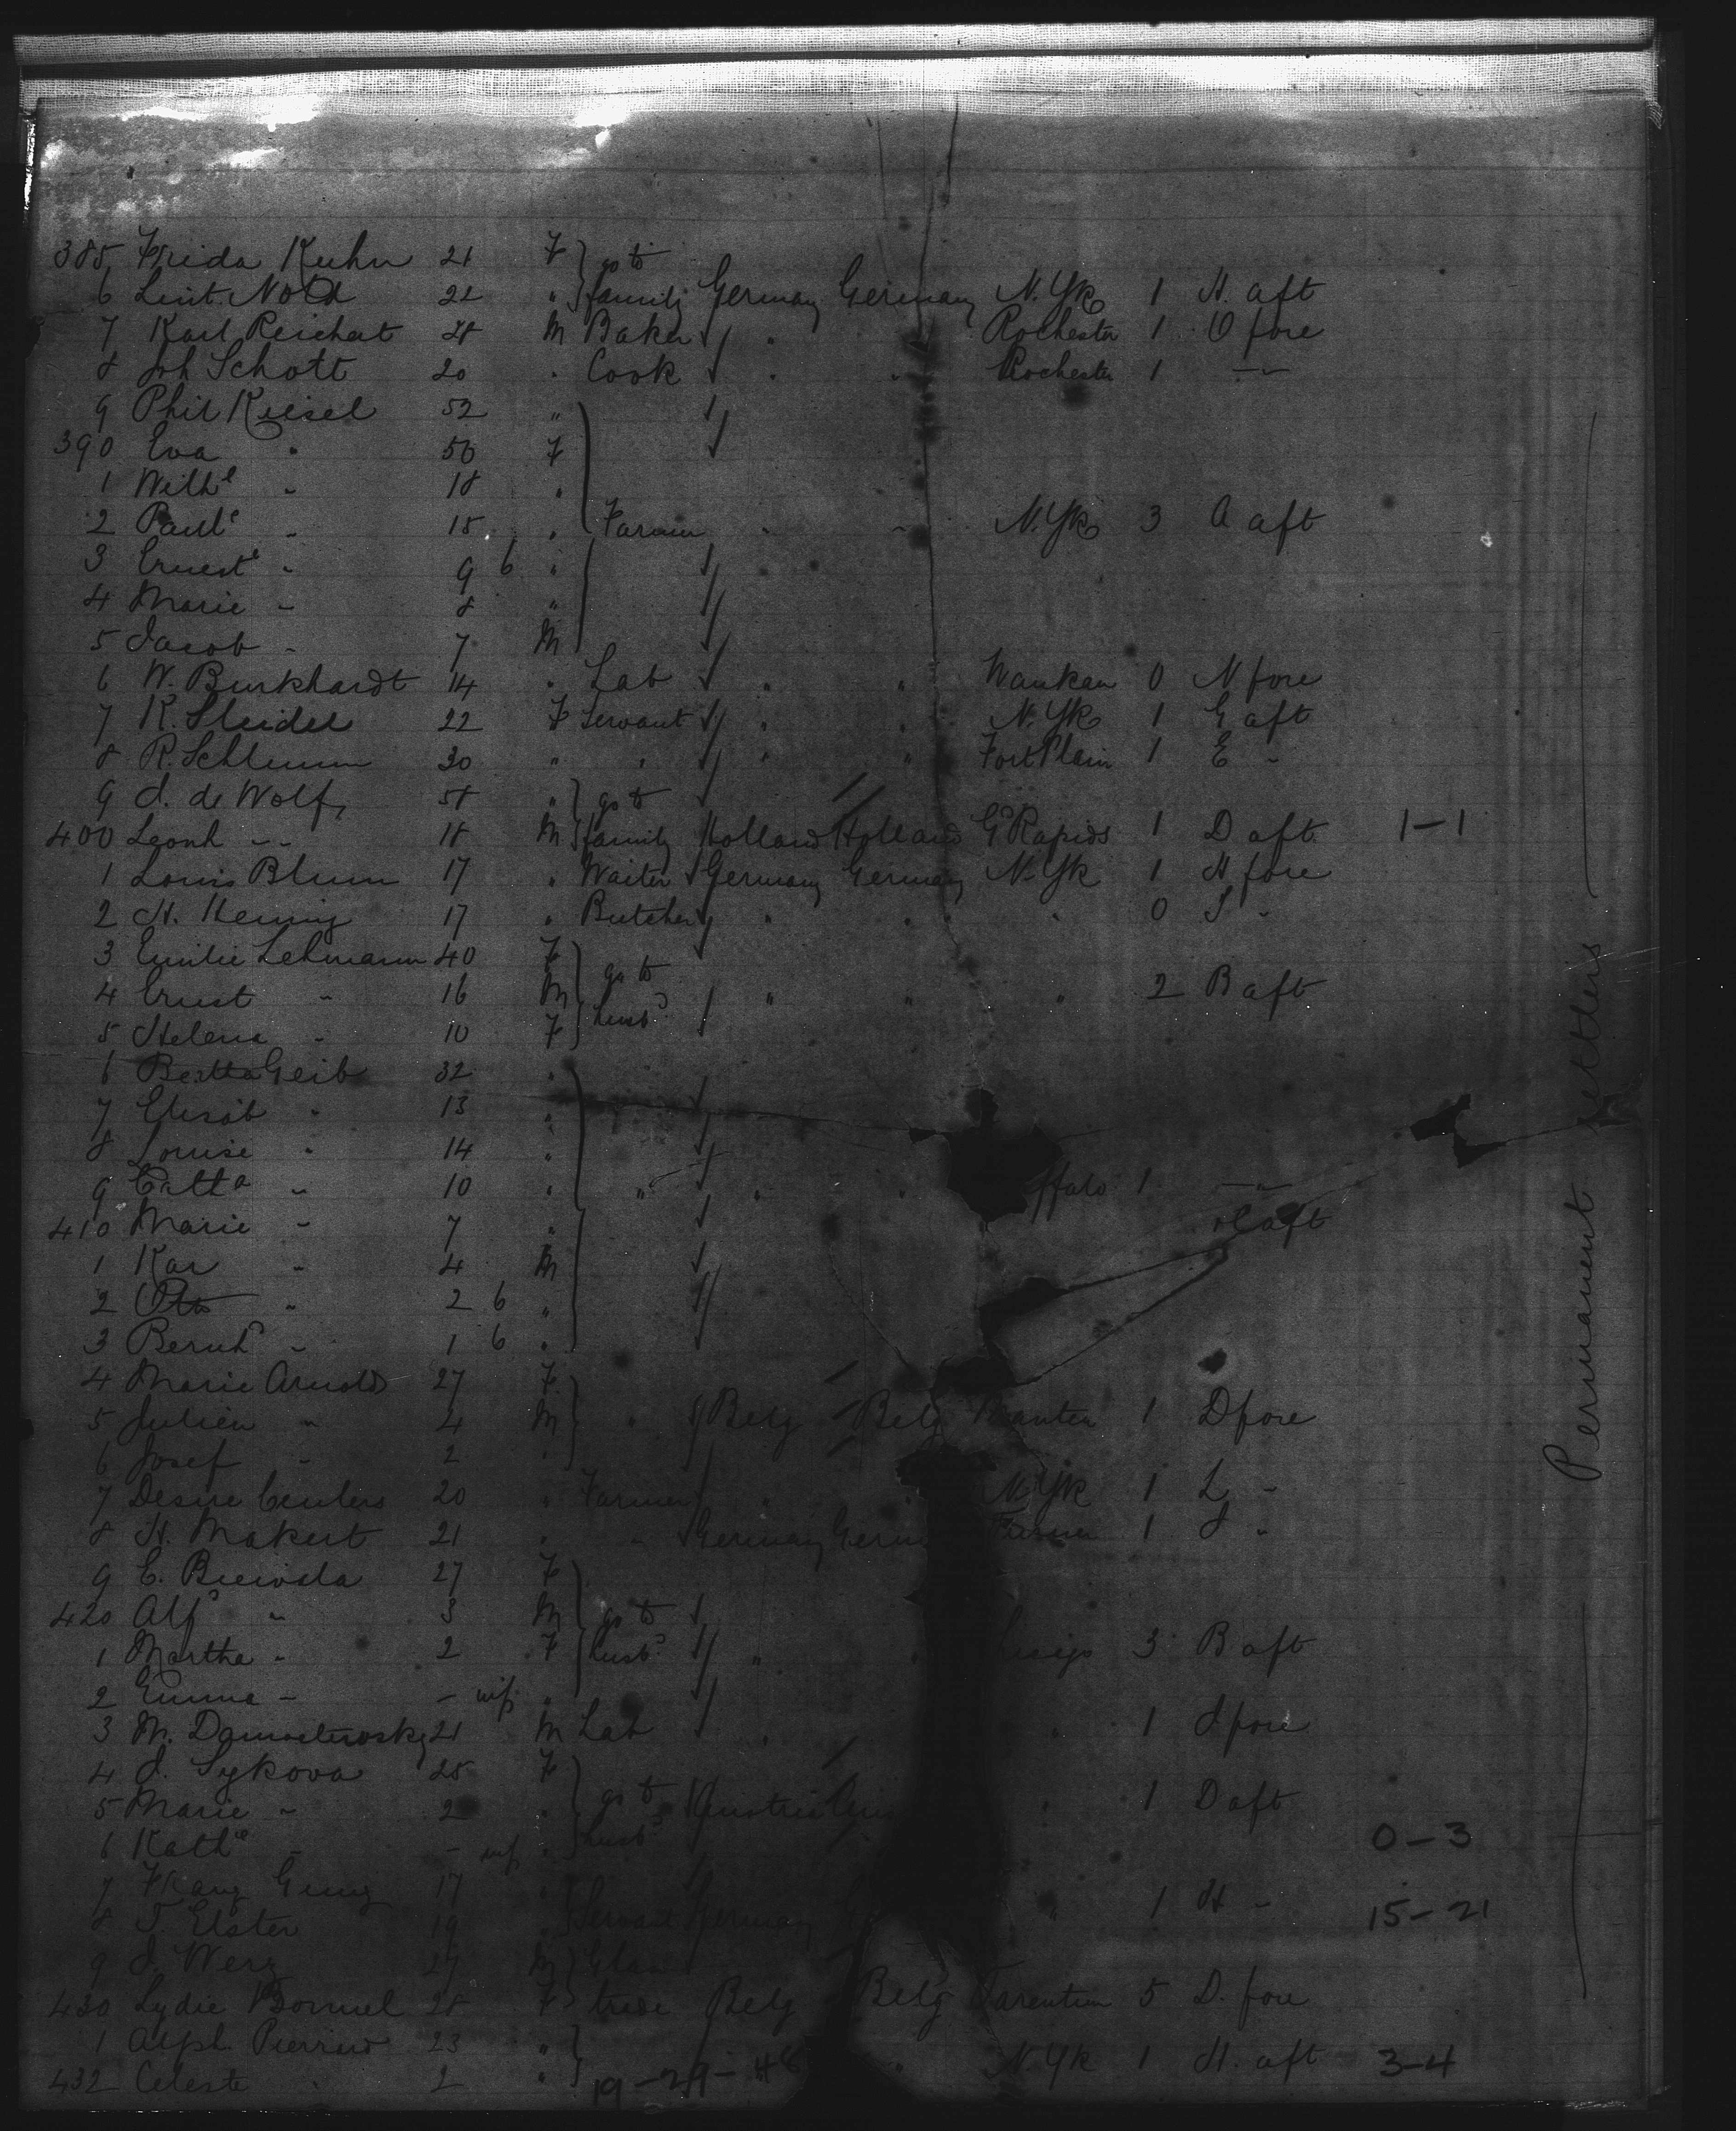 385 Frida Kuhn 21 F go to
6 Lint. Nold 22 " family Germany Germany N.Yk 1 H. aft
7 Karl Reichert 28 M Baker " " Rochester 1 O fore
8 Joh Schott 20 " Cook " " Rochester 1 —"—
9 Phil Kiesel 52 "
390 Eva " 50 F
1 Wilhe " 18 "
2 Paule " 15 " Farmer " " N.Yk 3 A aft
3 Erneste " 9 6 "
4 Marie " 8 "
5 Jacob " 7 M
6 W. Burkhardt 14 " Lab " " 0 N fore
7 K. 22 F Servant " " N.Yk 1 G aft
8 R. Schlumm 30 " " " " Fort Plain 1 E "
9 J. de Wolf 58 " go to
400 Leonh " 18 M family Holland Holland Gd Rapids 1 D aft 1-1
1 Louis Blum 17 " Waiter Germany Germany N.Yk 1 H fore
2 H. Hennig 17 " Butcher " " " 0 S "
3 Emilie Lehmann 40 F go to
4 Ernst " 16 M husbd " " " 2 B aft
5 Helena " 10 F
6 Bertha Geib 32 "
7 Elisab " 13 "
8 Louise " 14 "
9 Catha " 10 " " " " ffalo 1 —"—
410 Marie " 7 " aft
1 Kar " 4 M
2 Otto " 2 6 "
3 Bernhd " 1 6 "
4 Marie Arnold 27 F
5 Julien " 4 M " Belg Belg 1 D fore
6 Josef " 2 "
7 Desire Ceulers 20 " Farmer " N.Yk 1 L "
8 H. Makert 21 " " Germany Germ 1 J "
9 E. 27 F
420 Alfd " 3 M go to
1 Martha " 2 F husbd " " 3 B aft
2 Emma " - inf "
3 M. 21 M Lab " " 1 J fore
4 J. Sykova 25 F
5 Marie " 2 " go to Austria Aus " 1 D aft
6 Kathe " - inf " husbd 0-3
7 Franz 17 "
8 T. Elster 19 " Servant Germany G " 1 H " 15-21
9 J. Werz 27 M Glas
430 Lydie Bonnel 28 F Belg Belg Tarentum 5 D. fore
1 Alph. Pierrard 23 "
432 Celeste " 2 " 19-29-48 " N.Yk 1 H. aft 3-4
Permanent settlers